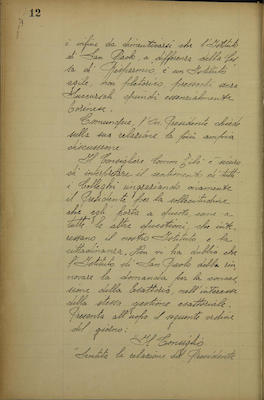 12
è infine da dimenticarsi che l'Istituto
di San Paolo, a differenza della
di Risparmio, è un Istituto
agile, non pletorico
Succursali, quindi essenzialmente
torinese.
Comunque, l'On. Presidente chiede
sulla sua relazione la più ampia
discussione.
Il Consigliere Comm. è sicuro
di interpretare il sentimento di tutti
i Colleghi ringraziando vivamente
il Presidente per la sollecitudine
che egli porta a questa come a
tutte le altre questioni, che inte-
ressano il nostro Istituto e la
cittadinanza. Non vi ha dubbio che
l'Istituto di San Paolo debba rin
novare la domanda per la conces
sione della Esattoria, nell'interesse
della stessa gestione esattoriale.
Presenta all'uopo il seguente ordine
del giorno:
Il Consiglio
"Sentita la relazione del Presidente